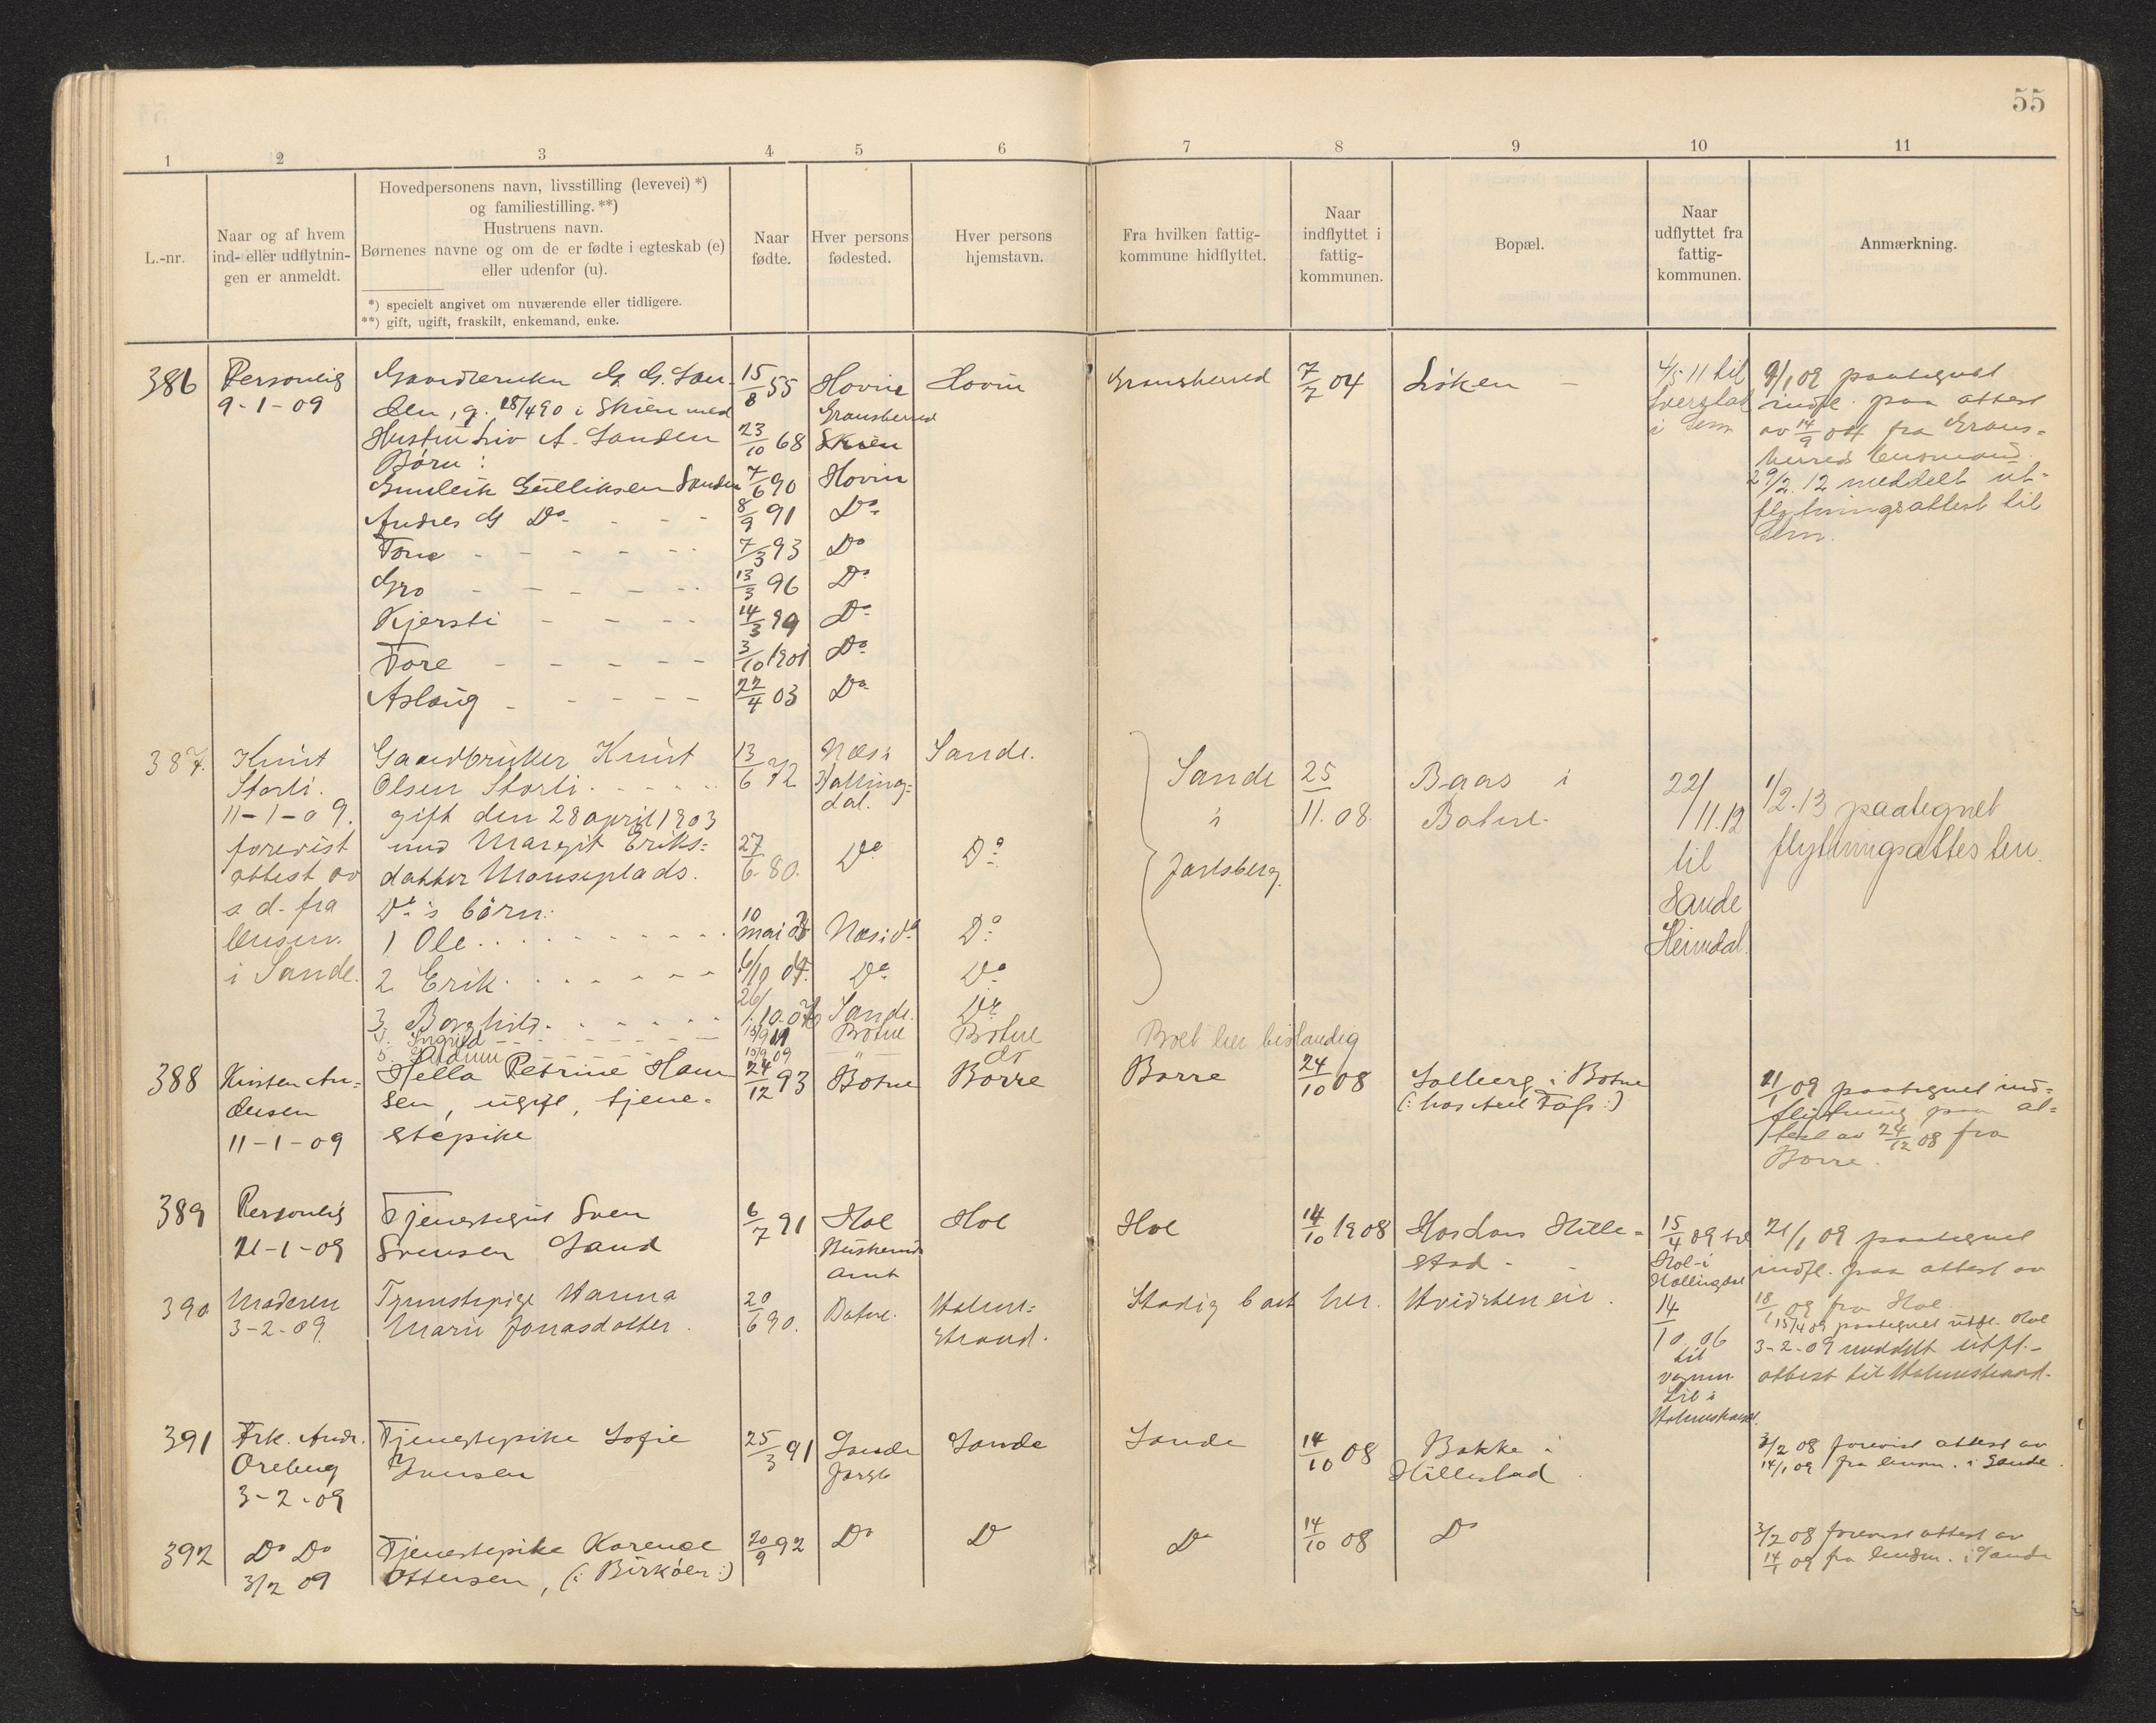 55
1 2 3 4 5 6 7 8 9 10 11
L.-nr.
Naar og af hvem
ind- eller udflytnin-
gen er anmeldt.
Hovedpersonens navn, livsstilling (levevei) *)
og familiestilling. **)
Hustruens navn.
Børnenes navne og om de er fødte i egteskab (e)
eller udenfor (u).
*) specielt angivet om nuværende eller tidligere.
**) gift, ugift, fraskilt, enkemand, enke.
Naar
fødte.
Hver persons
fødested.
Hver persons
hjemstavn.
Fra hvilken fattig-
kommune hidflyttet.
Naar
indflyttet i
fattig-
kommunen.
Bopæl.
Naar
udflyttet fra
fattig-
kommunen.
Anmærkning.
386
Personlig
9-1-09
G. G. San-
den, g. 18/4 90 i Skien med
Hustru Liv A. Sanden
Børn:
Gunleik Gulliksen Sanden
Andres G Do - - -
Tone - - - - -
Gro - - - - -
Kjersti - - - -
Tore - - - - -
Aslaug - - - - -
15/8 55
23/10 68
7/6 90
8/9 91
7/3 93
13/3 96
14/3 99
3/10 1901
22/4 03
Hovin
Gransherred
Skien
Hovin
Do
Do
Do
Do
Do
Do
Hovin
Gransherred
7/7 04
Løken -
4/5 11 til
i Sem
9/1 09 paategnet
indfl. paa attest
av 14/9 04 fra Grans-
herred lensmand.
29/2. 12 meddelt ut-
flytningsattest til
Sem.
387.
Knut
Storli.
11-1-09.
forevist
attest av
s d. fra
lensm.
i Sande.
Gaardbruker Knut
Olsen Storli - - - -
gift den 28 april 1903
med Margit Eriks-
datter Monseplads.
Do's børn:
1 Ole - - - - -
2 Erik - - - - -
3. Borghild - - - - -
4. Ingrid - - - - -
5.
13/6 72
27/6 80.
10 mai
6/10 04.
26/10-
15/9 09
Næs i
Halling-
dal.
Do
Næs i do
Do
Sande.
Botne
"
Sande.
Do
Do
Do
Do
Botne
do
Sande
"
Jarlsberg.
Boet her bestandig
25/11.08.
Baas i
Botne.
22/11.12
til
Sande
Heimdal.
1/2.13 paategnet
flytningsattesten.
388
Kristen An-
dersen
11-1-09
Hella Petrine Han
sen, ugift, tjene-
stepike
24/12 93
Botne
Borre
Borre
24/10 08
Solberg i Botne
(: hos :)
11/1 09 paategnet ind-
flytning paa at-
test av 24/12 08 fra
Borre.
389
Personlig
21-1-09
Tjenestegut Sven
Svensen Sand
6/7 91
Hol
Buskeruds
amt
Hol
Hol
14/10 1908
Hos Lars Hille-
stad - -
15/4 09 til
Hol i
Hallingdal
21/1 09 paategnet
indfl. paa attest av
18/1 09 fra Hol.
15/4 09 paategnet utfl. Hol
390
Moderen
3-2-09
Tjenestepige Hanna
Marie Jonasdatter.
20/6 90.
Botne.
Holme-
strand.
Stadig boet her.
Hvidsteneie.
14/10.06
til
i
Holmestrand.
3-2-09 meddelt utfl.-
attest til Holmestrand.
391
Frk. Andr.
Oreberg
3-2-09
Tjenestepike Sofie
Jensen
25/3 91
Sande
Jarsb
Sande
Sande
14/10 08
Bakke i
Hillestad.
3/2 08 forevist attest av
14/1 09 fra lensm. i Sande.
392
Do Do
3/2 09
Tjenestepike Karense
Ottersen, (: Birkøen :)
20/9 92
Do
D
Do
14/10 08
Do
3/2 08 forevist attest av
14/1 09 fra lensm. i Sande